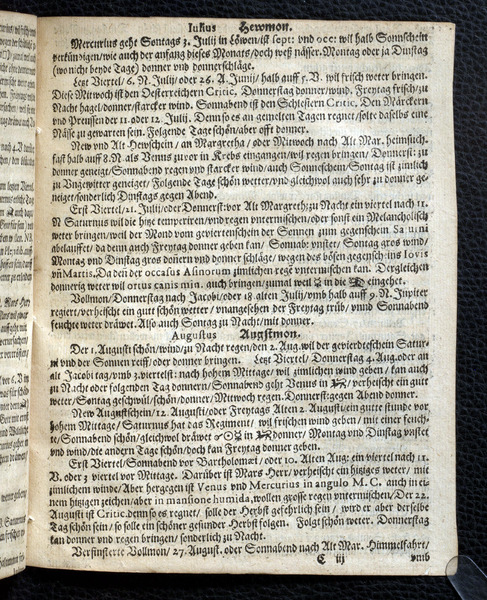 Iulius Hewmon.
Mercurius geht Sontags 3. Julij in Löwen/ist sept: vnd occ: wil halb Sonnschein
verkündigen/wie auch der anfang dieses Monats/doch weß nässer. Montag oder ja Dinstag
(wo nicht beyde Tage) donner vnd donnerschläge.
Letzt Viertel/6. N. Julij/oder 26. A. Junij/halb auff 5. V. wil frisch weter bringen.
Diese Mitwoch ist den Oesterreichern Critic, Donnerstag donner/wind. Freytag frisch/zu
Nacht hagel/donner/starcker wind. Sonnabend ist den Schlesiern Critic, Den Märckern
vnd Preussen der 11. oder 12. Julij. Denn so es an gemelten Tagen regnet/solte daselbs eine
Nässe zu gewarten sein. Folgende Tage schön/aber offt donner.
New vnd Alt Hewschein/an Margretha/oder Mitwoch nach Alt Mar. heimsuch.
fast halb auff 8. N. als Venus zuvor in Krebs eingangen/wil regen bringen/Donnerst: zu
donner geneigt/Sonnabend regen vnd starcker wind/auch Sonnschein/Sontag ist zimlich
zu Vngewitter geneiget/Folgende Tage schön wetter/vnd gleichwol auch sehr zu donner ge-
neiget/sonderlich Dinstags gegen Abend.
Erst Viertel/21. Julij/oder Donnerst: vor Alt Margreth: zu Nacht ein viertel nach 11.
N Saturnus wil die hitze temperiren/vnd regen vntermischen/oder sonst ein Melancholisch
weter bringen/weil der Mond vom gevierten schein der Sonnen zum gegenschein Saturni
ablauffet/da denn auch Freytag donner geben kan/Sonnab: vnstet/Sontag gros wind/
Montag vnd Dinstag gros donern vnd donner schläge/wegen des bösen gegenscheins Iovis
vñ Martis, Da den der occasus Asinorum zimlichen rege vntermischen kan. Dergleichen
donnerig weter wil ortus canis min. auch bringen/zumal weil ☿ in die ♌ eingehet.
Vollmon/Donnerstag nach Jacobi/oder 18 alten Julij/vmb halb auff 9. N. Jupiter
regiert/verheischt ein gut schön wetter/vnangesehen der Freytag trüb/vnnd Sonnabend
feuchte weter dräwet. Also auch Sontag zu Nacht/mit donner.
Augustus Augstmon.
Der 1. Augusti schön/wind/zu Nacht regen/den 2. Aug. wil der gevierdte schein Satur-
ni vnd der Sonnen reiff/oder donner bringen. Letzt Viertel/Donnerstag 4. Aug. oder an
alt Jacobi tag/vmb 3. viertel: nach hohem Mittage/wil zimlichen wind geben/kan auch
zu Nacht oder folgenden Tag donnern/Sonnabend geht Venus in ♍/verheischt ein gutt
weter/Sontag geschwül/schön/donner/Mitwoch regen. Donnerst: gegen Abend donner.
New Augustschein/12. Augusti/oder Freytags Alten 2. Augusti/ein gutte stunde vor
hohem Mittage/Saturnus hat das Regiment/wil frischen wind geben/mit einer feuch-
te/Sonnabend schön/gleichwol dräwet ☌☉☿ in ♍ donner/Montag vnd Dinstag vnstet
vnd wind/die andern Tage schön/doch kan Freytag donner geben.
Erst Viertel/Sonnabend vor Bartholomæi/oder 10. Alten Aug: ein viertel nach 11.
V. oder 3 viertel vor Mittage. Darüber ist Mars Herr/verheischt ein hitziges weter/mit
zimlichem winde/Aber hergegen ist Venus vnd Mercurius in angulo M. C. auch in ei-
nem hitzigen zeichen/aber in mansione humida, wollen grosse regen vntermischen/Der 22.
Augusti ist Critic. denn so es regnet/solle der Herbst gefehrlich sein/wird er aber derselbe
Tag schön sein/so solle ein schöner gesunder Herbst folgen. Folgt schön weter. Donnerstag
kan donner vnd regen bringen/sonderlich zu Nacht.
Verfinsterte Vollmon/27. August. oder Sonnabend nach Alt Mar. Himmelfahrt/
C iij vmb